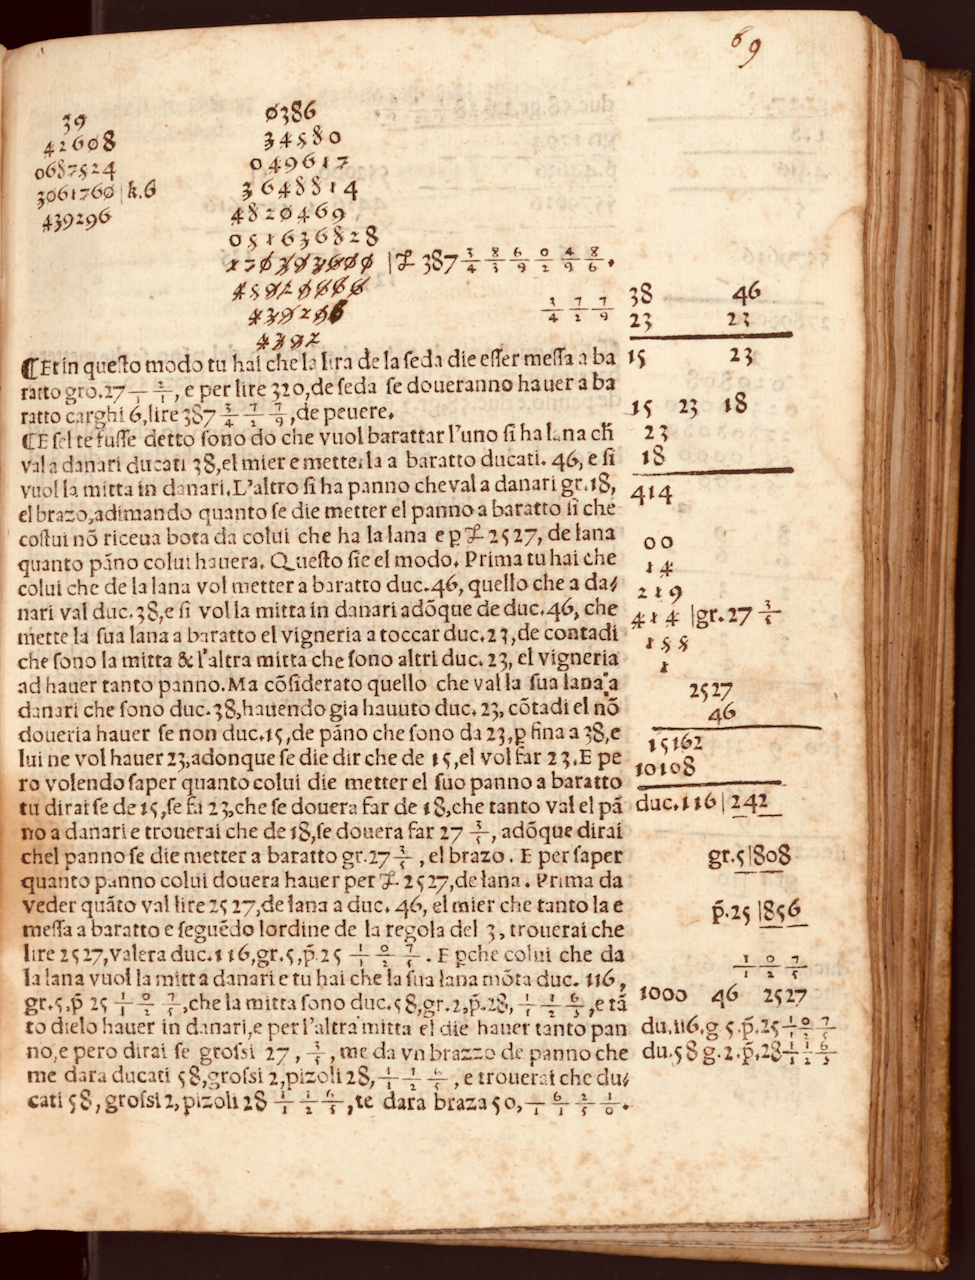 69
39
42608
0687524
3061760 | k.6
439296
0386
34580
049617
3648814
4820469
051636828
| ₤ 387 3/4 8/3 6/9 0/2 4/9 8/6.
3/4 7/2 7/9
¶Et in questo modo tu hai che la lira de la seda die esser messa a ba
ratto gro.27 — 2/1, e per lire 320, de seda se doueranno hauer a ba
ratto carghi 6, lire 387 3/4 7/2 7/9, de peuere.
¶E sel te fusse detto sono do che vuol barattar l'uno si ha lana ch̄
val a danari ducati 38, el mier e metterla a baratto ducati. 46, e si
vuol la mitta in danari. L'altro si ha panno che val a danari gr.18,
el brazo, adimando quanto se die metter el panno a baratto si che
costui nō riceua bota da colui che ha la lana e ꝑ ₤ 2527, de lana
quanto pāno colui hauera. Questo sie el modo. Prima tu hai che
colui che de la lana vol metter a baratto duc.46, quello che a da/
nari val duc.38, e si vol la mitta in danari adōque de duc.46, che
mette la sua lana a baratto el vigneria a toccar duc.23, de contadi
che sono la mitta & l'altra mitta che sono altri duc.23, el vigneria
ad hauer tanto panno. Ma cōsiderato quello che val la sua lana a
danari che sono duc.38, hauendo gia hauuto duc.23, cōtadi el nō
doueria hauer se non duc.15, de pāno che sono da 23, ꝑ fina a 38, e
lui ne vol hauer 23, adonque se die dir che de 15, el vol far 23. E pe
ro volendo saper quanto colui die metter el suo panno a baratto
tu dirai se de 15, se fa 23, che se douera far de 18, che tanto val el pā
no a danari e trouerai che de 18, se douera far 27 3/5, adōque dirai
chel panno se die metter a baratto gr.27 3/5, el brazo. E per saper
quanto panno colui douera hauer per ₤. 2527, de lana. Prima da
veder quāto val lire 2527, de lana a duc. 46, el mier che tanto la e
messa a baratto e seguēdo lordine de la regola del 3, trouerai che
lire 2527, valera duc.116, gr.5, p̄.25 1/1 0/2 7/5. E ꝑche colui che da
la lana vuol la mitta danari e tu hai che la sua lana mōta duc. 116,
gr.5, p̄ 25 1/1 0/2 7/5, che la mitta sono duc.58, gr.2, p̄.28, 1/1 1/2 6/5, e tā
to dielo hauer in danari, e per l'altra mitta el die hauer tanto pan
no, e pero dirai se grossi 27, 3/5, me da vn brazzo de panno che
me dara ducati 58, grossi 2, pizoli 28, 1/1 1/2 6/5, e trouerai che du/
cati 58, grossi 2, pizoli 28 1/1 1/2 6/5, te dara braza 50, 1/1 6/1 2/5 1/0.
38 46
23 23
15 23
15 23 18
23
18
414
00
14
219
414 | gr.27 3/5
155
1
2527
46
15162
10108
duc.116 | 242
gr.5 | 808
p̄.25 | 856
1/1 0/2 7/5
1000 46 2527
du.116.g 5.p̄.25 1/1 0/2 7/5
du.58 g.2.p̄.28 1/1 1/2 6/5